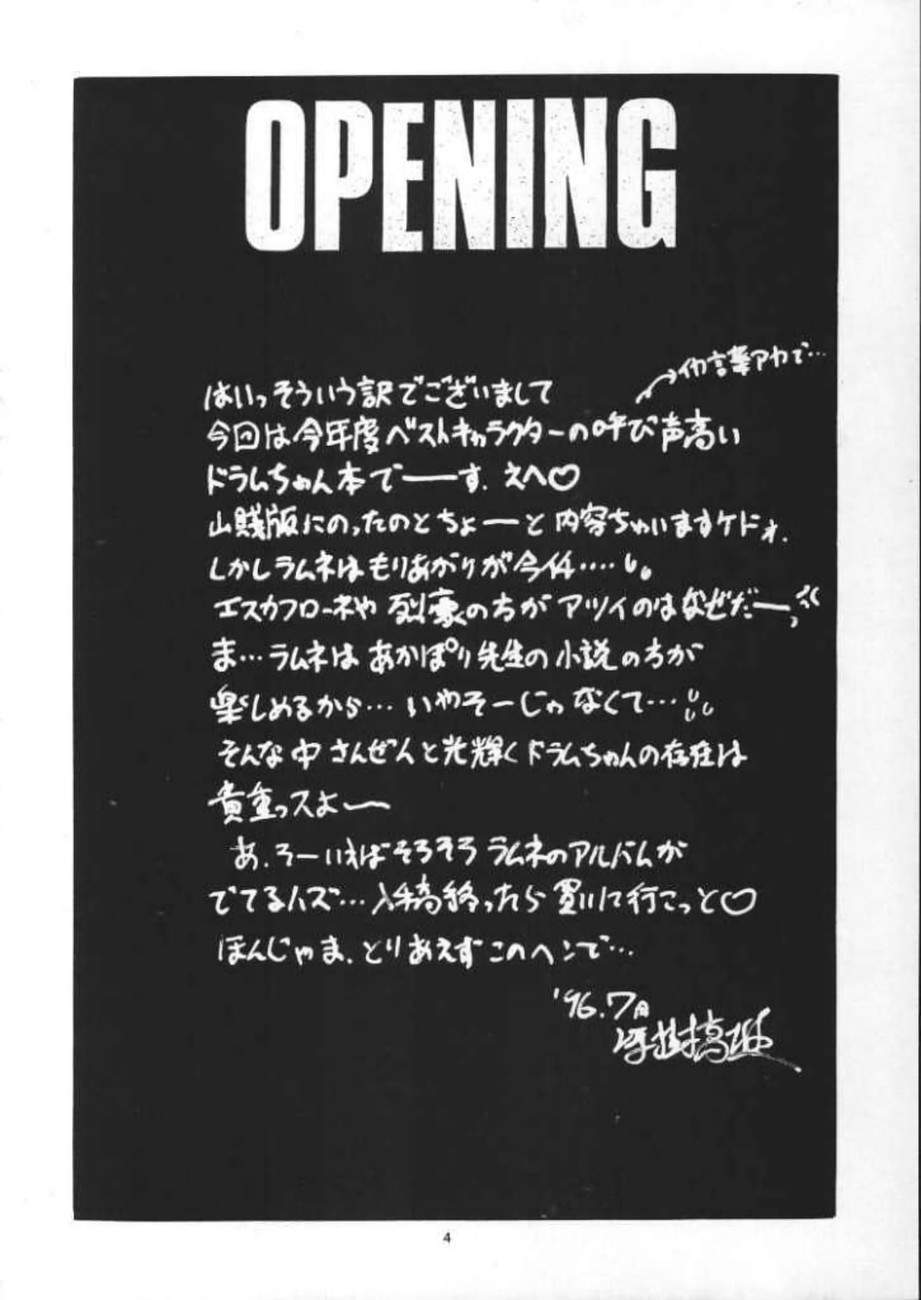 OPENING
はいっそういう訳でございまして
今回は今年度ベストキャラクターの呼び声高い
ドラムちゃん本でーーす.えへ♡
山賊版にのったのとちょーーと内容ちゃいますケドォ.
しかしラムネはもりあがりが今イチ‥‥
エスカフローネや烈豪の方がアツイのはなぜだーーっ
ま…ラムネはあかほり先生の小説の方が
楽しめるから…いやそーじゃなくて…
そんな中さんぜんと光輝くドラムちゃんの存在は
貴重っスよーー
あ.そーいえばそろそろラムネのアルバムが
でてるハズ…入稿終ったら買いに行こっと♡
ほんじゃま.とりあえずこのヘンで…
'96.7月
4